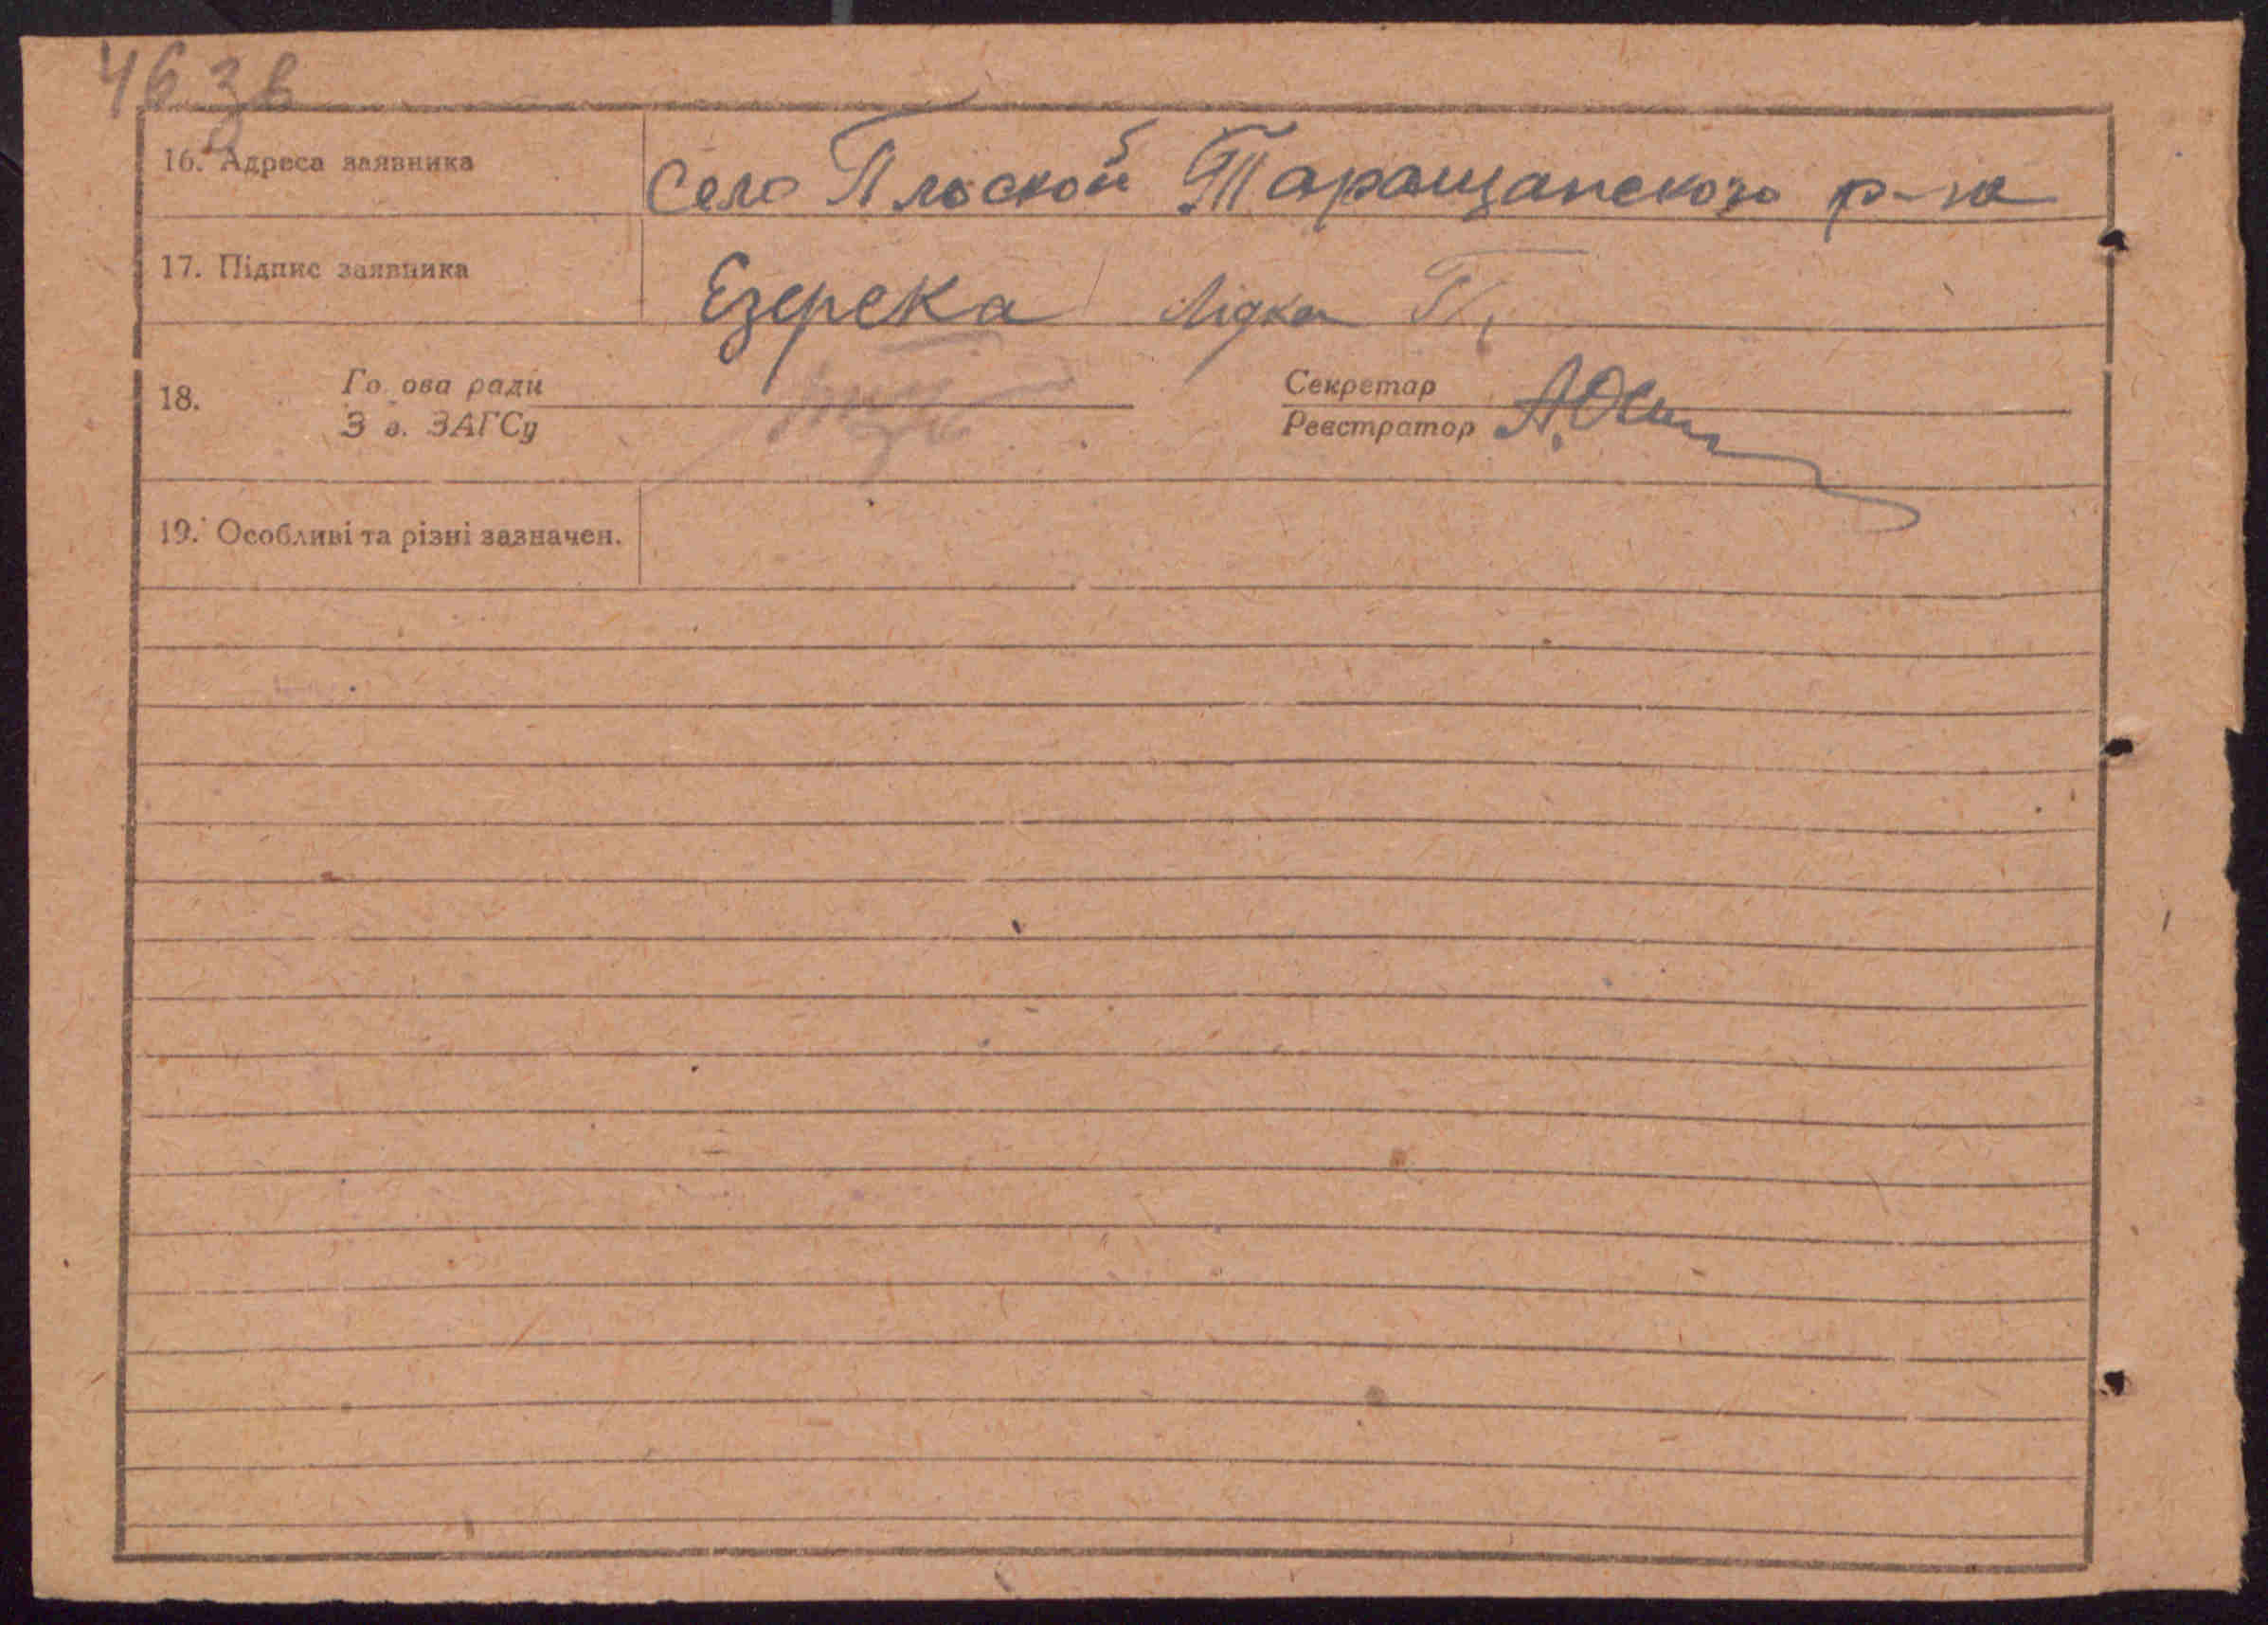 46 зв
16. Адреса заявника Село Плоской Таращанского р-на
17. Підпис заявника Езерска Лідка
18. Го ова ради Секретар
З в. ЗАГСу Реєстратор
19. Особливі та різні зазначен.